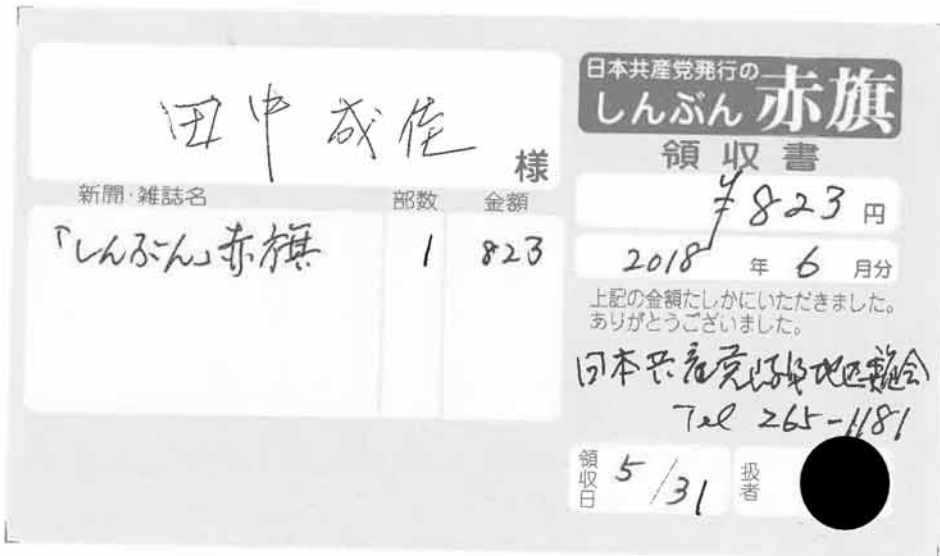 田中成佳 様
新聞・雑誌名 部数 金額
「しんぶん」赤旗 1 823
日本共産党発行の
しんぶん 赤旗
領収書
¥823 円
2018 年 6 月分
上記の金額たしかにいただきました。
ありがとうございました。
日本共産党 地区委員会
Tel 265-1181
領収日 5/31 扱者